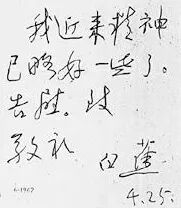 我近来精神
已略好一些了。
告慰。
敬礼
白蕉
4.25.